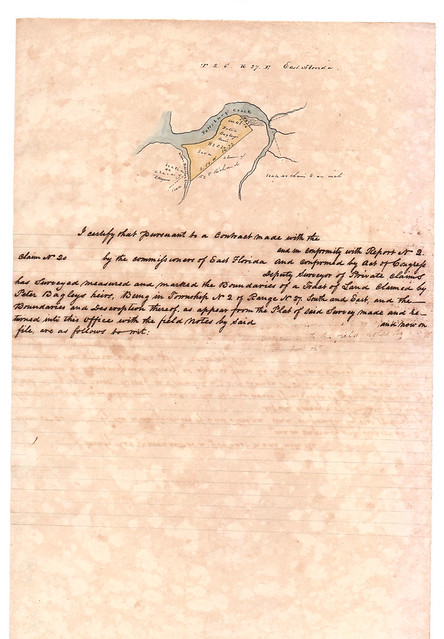 T 2 S R 27 E East Florida.
Pottsburg Creek
Peter
Bagleys
I certify that Pursuant to a Contract made with the
and in conformity with Report No 2
Claim No 20 by the commissioners of East Florida and Confirmed by Act of Congress
Deputy Surveyor of Private Claims
has Surveyed measured and marked the Boundaries of a Tract of Land Claimed by
Peter Bagleys heirs, Being in Township No 2 of Range No 27. South and East, and the
Boundaries and Description thereof, as appear from the Plat of said Survey made and re-
turned into this Office with the field notes by said and now on
file are as follows to wit: